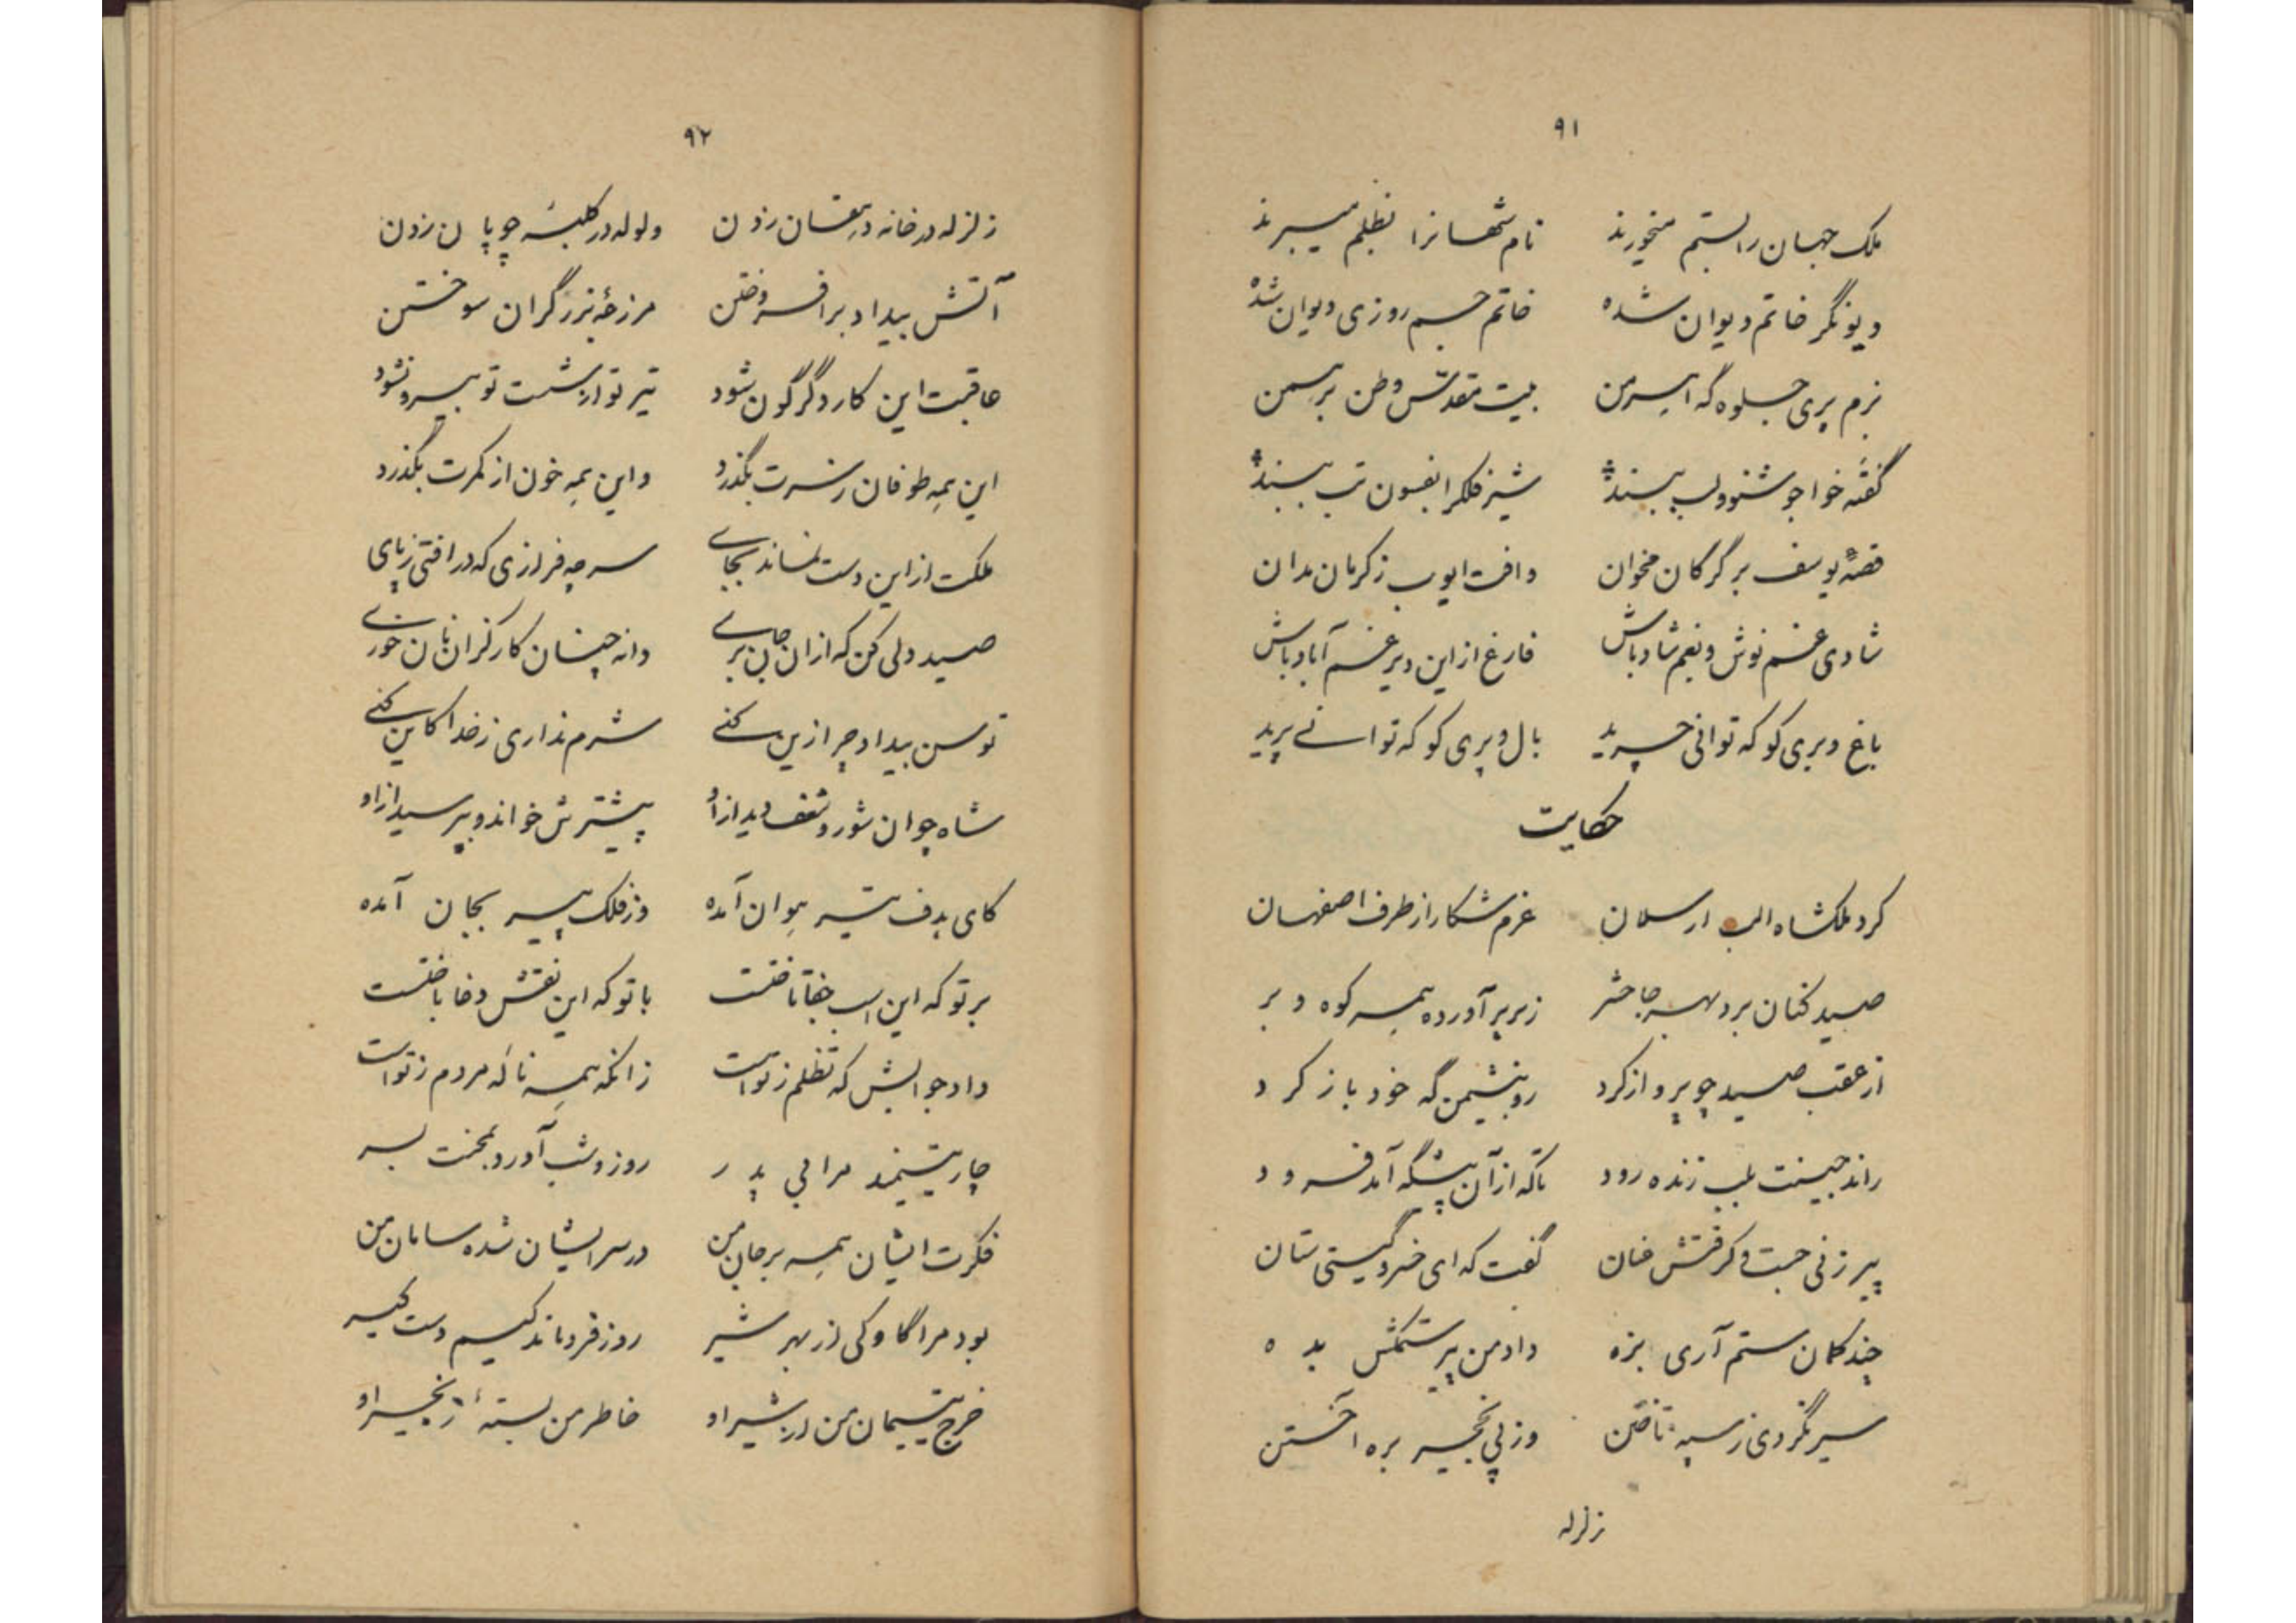 ۹۱
ملک جهان را بستم میخورند نام شهانرا بظلم میبرند
دیو نگر خاتم دیوان شده خاتم جم روزی دیوان شده
بزم پری جلوه گه اهرمن بیت مقدس وطن برهمن
گفته خواجو شنو و لب ببند شیر فلک را بفسون تب ببند
قصهٔ یوسف بر گرگان مخوان وافت ایوب ز کرمان مدان
شادی غم نوش و بغم شاد باش فارغ از این دیر غم آباد باش
باغ و بری کو که توانی چرید بال و پری کو که توانی پرید
حکایت
کرد ملکشاه الب ارسلان عزم شکار از طرف اصفهان
صید کنان برد بهر جا حشر زیر پر آورده همه کوه و بر
از عقب صید چو پرواز کرد رو بنشیمن گه خود باز کرد
راند جنیبت بلب زنده رود تا که از آن پیشگه آمد فرود
پیر زنی جست و گرفتش عنان گفت که ای خسرو گیتی ستان
چند کمان ستم آری بزه داد من پیر ستمکش بده
سیر نگردی ز سپه تاختن وز پی نخجیر بره آختن
زلزله
۹۲
زلزله در خانه دهقان زدن ولوله در کلبهٔ چوپان زدن
آتش بیداد بر افروختن مزرعهٔ برزگران سوختن
عاقبت این کار دگرگون شود تیر تو از شست تو بیرون شود
این همه طوفان ز سرت بگذرد واین همه خون از کمرت بگذرد
ملکت از این دست نماند بجای سر چه فرازی که در افتی ز پای
صید دلی کن که از آن جان بری دانه چنان کار کز آن نان خوری
توسن بیداد چرا زین کنی شرم نداری ز خدا کاین کنی
شاه چو آن شور و شغف دید از او پیشترش خواند و بپرسید از او
کای هدف تیر هوان آمده وز فلک پیر بجان آمده
بر تو که این اسب جفا تاختست با تو که این نقش دغا باختست
داد جوابش که تظلم ز تو است زانکه همه ناله مردم ز تو است
چار یتیمند مرا بی پدر روز و شب آورده بمحنت بسر
فکرت ایشان همه بر جان من در سر ایشان شده سامان من
بود مرا گاوکی از بهر شیر روز فروماندگیم دست گیر
خرج یتیمان من از شیر او خاطر من بستهٔ زنجیر او